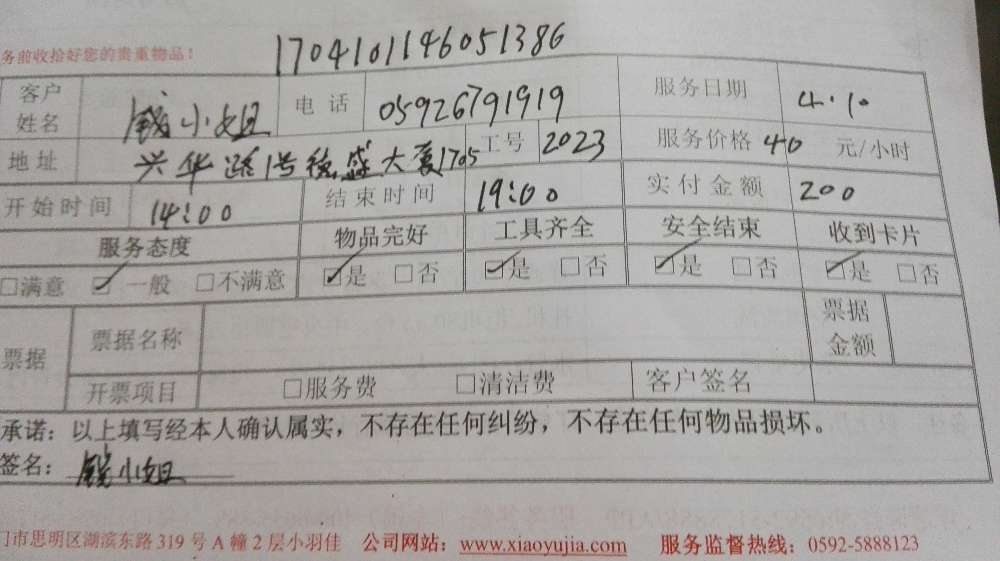 务前收拾好您的贵重物品！
1704101146051386
客户姓名 钱小姐 电话 05926791919 服务日期 4.10
地址 兴华路1号德盛大厦1705 工号 2023 服务价格 40 元/小时
开始时间 14:00 结束时间 19:00 实付金额 200
服务态度 物品完好 工具齐全 安全结束 收到卡片
□满意 ☑一般 □不满意 ☑是 □否 ☑是 □否 ☑是 □否 ☑是 □否
票据 票据名称 票据金额
开票项目 □服务费 □清洁费 客户签名
承诺：以上填写经本人确认属实，不存在任何纠纷，不存在任何物品损坏。
签名：钱小姐
门市思明区湖滨东路 319 号 A 幢 2 层小羽佳 公司网站：www.xiaoyujia.com 服务监督热线：0592-5888123